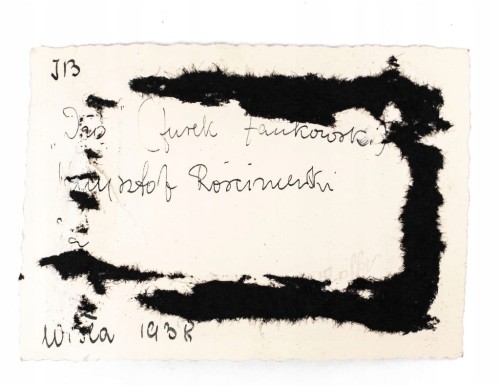 JB
(Jurek Jankowski)
Krzysztof Rościszewski
Wisła 1938